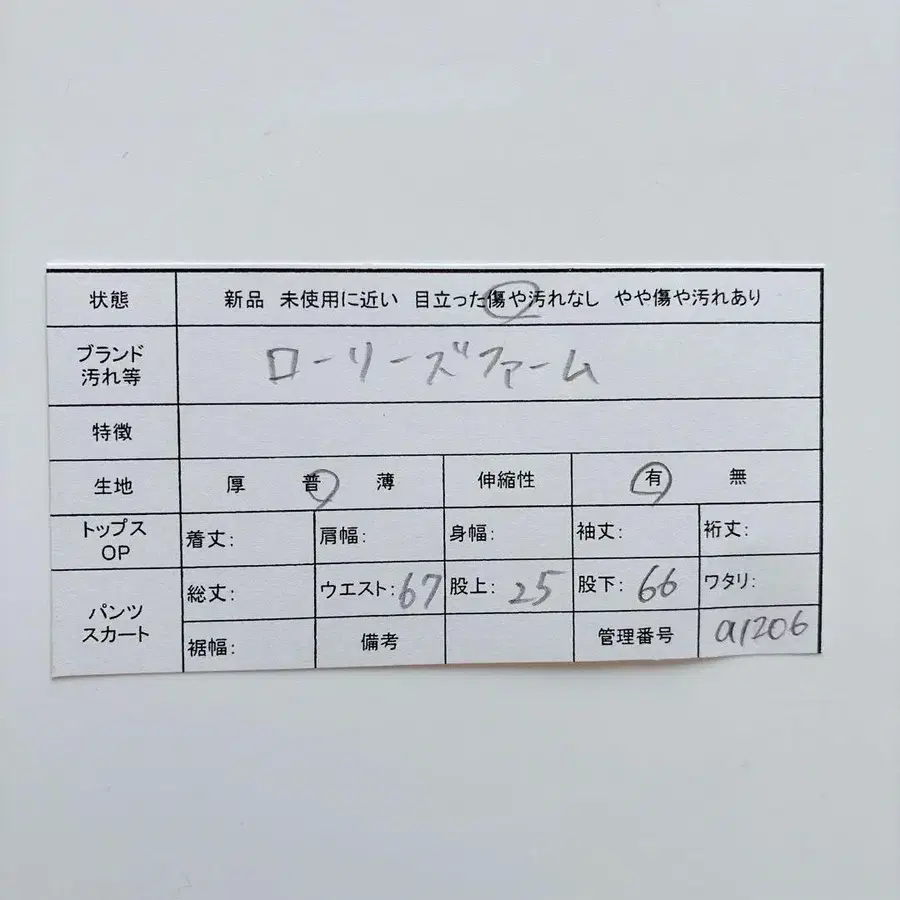 状態 新品 未使用に近い 目立った傷や汚れなし やや傷や汚れあり
ブランド
汚れ等 ローリーズファーム
特徴
生地 厚 普 薄 伸縮性 有 無
トップス
OP 着丈: 肩幅: 身幅: 袖丈: 裄丈:
パンツ
スカート 総丈: ウエスト:67 股上:25 股下:66 ワタリ:
裾幅: 備考 管理番号 a1206